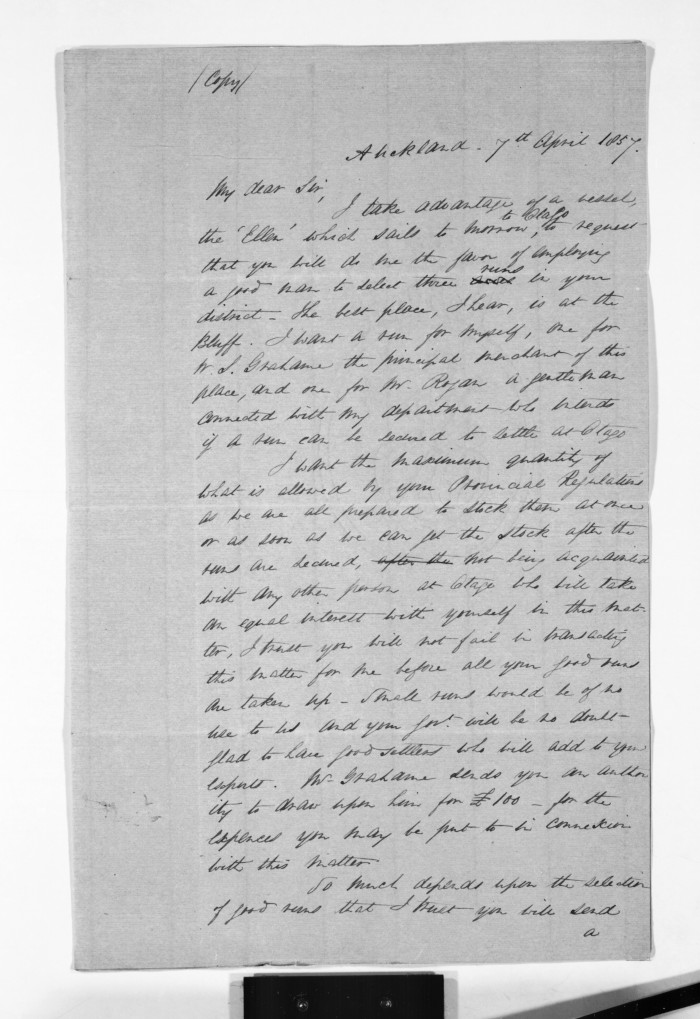 (Copy)
Auckland. 7th April 1857.
My dear Sir,
I take advantage of a vessel,
the 'Ellen' which sails to morrow, to Otago to request
that you will do me the favor of employing
a good man to select three runs in your
district - The best place, I hear, is at the
Bluff. I want a run for myself, one for
W. S. Grahame the principal merchant of this
place, and one for Mr. Rogan a gentleman
connected with my department who intends
if a run can be secured to settle at Otago
I want the maximum quantity of
what is allowed by your Provincial Regulations
as we are all prepared to stock them at once
or as soon as we can get the stock after the
runs are secured, after the not being acquainted
with any other person at Otago who will take
an equal interest with yourself in this mat-
ter, I trust you will not fail in transacting
this matter for me before all your good runs
are taken up - Small runs would be of no
use to us and your Govt. will be no doubt
glad to have good settlers who will add to your
exports. Mr Grahame sends you an author
ity to draw upon him for £100 - for the
expences you may be put to in connexion
with this matter
So much depends upon the selection
of good runs that I trust you will send
a